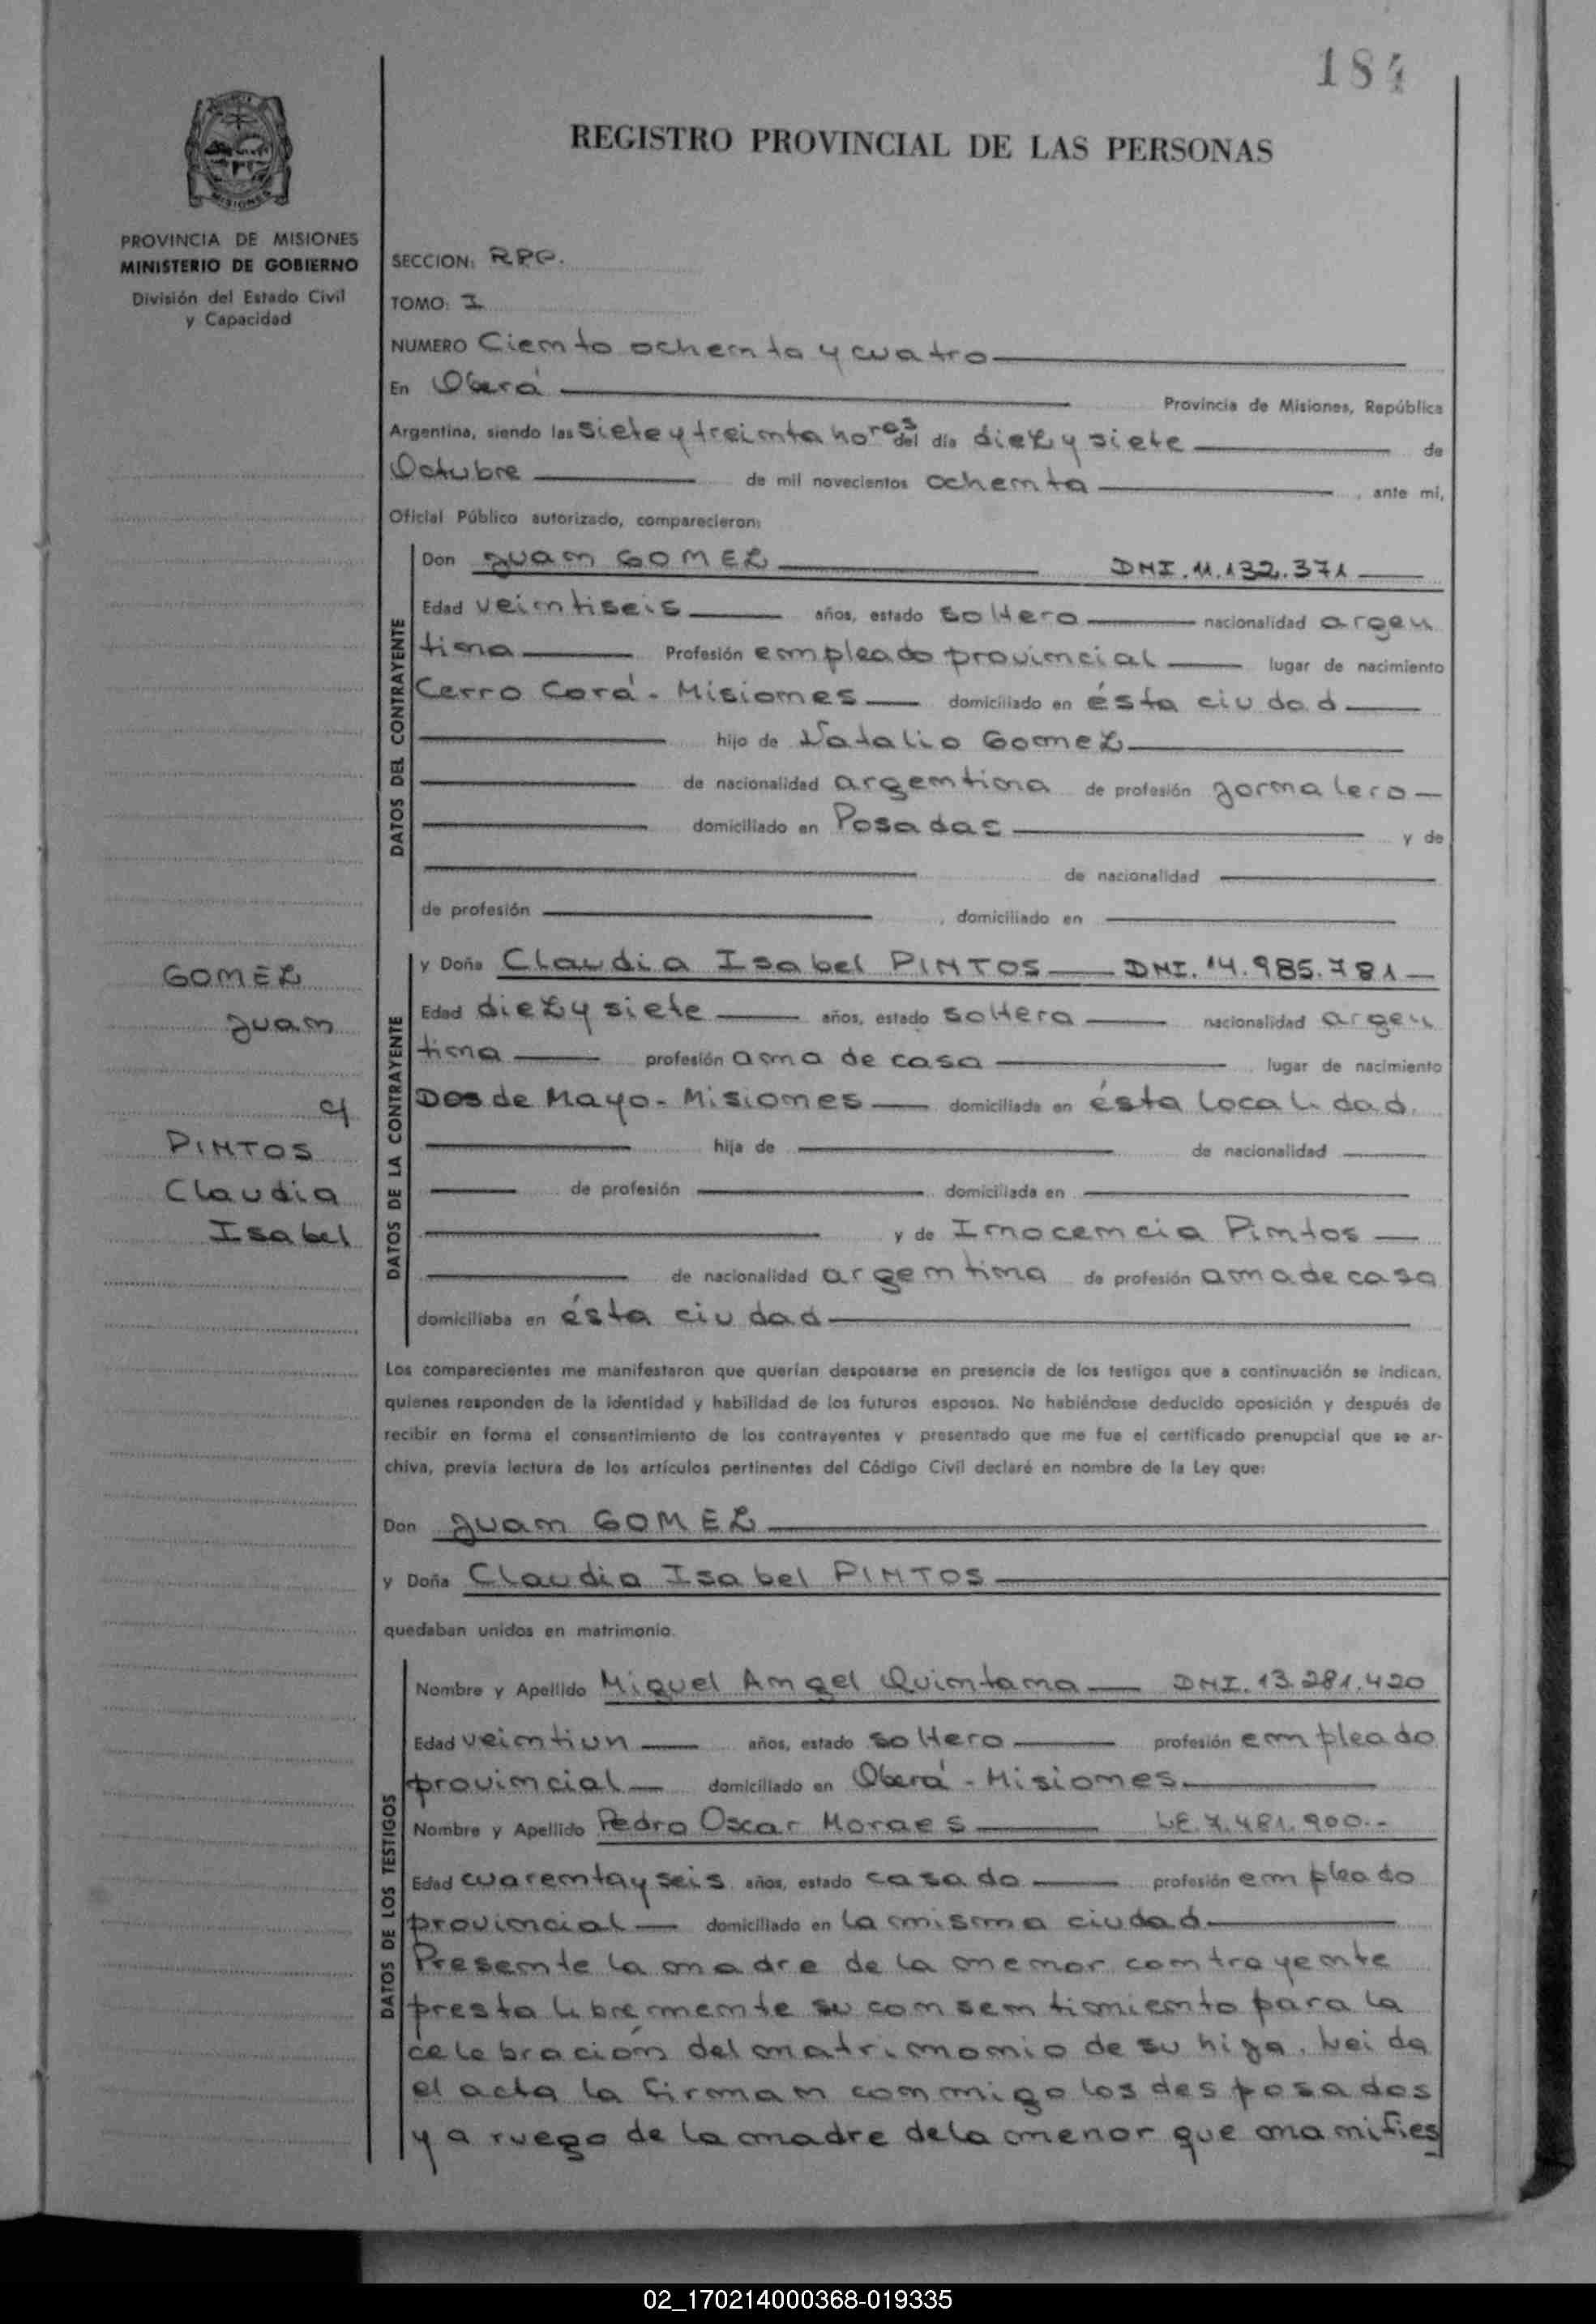 184
REGISTRO PROVINCIAL DE LAS PERSONAS
MISIONES
PROVINCIA DE MISIONES
MINISTERIO DE GOBIERNO
División del Estado Civil
y Capacidad
SECCION: RPG.
TOMO: I
NUMERO Ciento ochenta y cuatro
En Oberá Provincia de Misiones, República
Argentina, siendo las siete y treinta horas del día diez y siete de
Octubre de mil novecientos ochenta, ante mi,
Oficial Público autorizado, comparecieron:
DATOS DEL CONTRAYENTE
Don Juan GOMEZ DNI. 11.132.371
Edad veintiseis años, estado soltero nacionalidad argen
tina Profesión empleado provincial lugar de nacimiento
Cerro Corá - Misiones domiciliado en ésta ciudad
hijo de Natalio Gomez
de nacionalidad argentina de profesión jornalero
domiciliado en Posadas y de
de nacionalidad
de profesión , domiciliado en
GOMEZ
Juan
c/
PINTOS
Claudia
Isabel
DATOS DE LA CONTRAYENTE
y Doña Claudia Isabel PINTOS DNI. 14.985.781
Edad diez y siete años, estado soltera nacionalidad argen
tina profesión ama de casa lugar de nacimiento
Dos de Mayo - Misiones domiciliada en ésta localidad.
hija de de nacionalidad
de profesión domiciliada en
y de Inocencia Pintos
de nacionalidad argentina de profesión ama de casa
domiciliaba en ésta ciudad
Los comparecientes me manifestaron que querían desposarse en presencia de los testigos que a continuación se indican,
quienes responden de la identidad y habilidad de los futuros esposos. No habiéndose deducido oposición y después de
recibir en forma el consentimiento de los contrayentes y presentado que me fue el certificado prenupcial que se ar-
chiva, previa lectura de los artículos pertinentes del Código Civil declaré en nombre de la Ley que:
Don Juan GOMEZ
y Doña Claudia Isabel PINTOS
quedaban unidos en matrimonio.
DATOS DE LOS TESTIGOS
Nombre y Apellido Miguel Angel Quintana DNI. 13.281.420
Edad veintiun años, estado soltero profesión empleado
provincial domiciliado en Oberá - Misiones.
Nombre y Apellido Pedro Oscar Moraes LE. 7.481.900.-
Edad cuarenta y seis años, estado casado profesión empleado
provincial domiciliado en la misma ciudad.
Presente la madre de la menor contrayente
presta libremente su consentimiento para la
celebración del matrimonio de su hija. Leida
el acta la firman conmigo los desposados
y a ruego de la madre de la menor que manifies
02_170214000368-019335